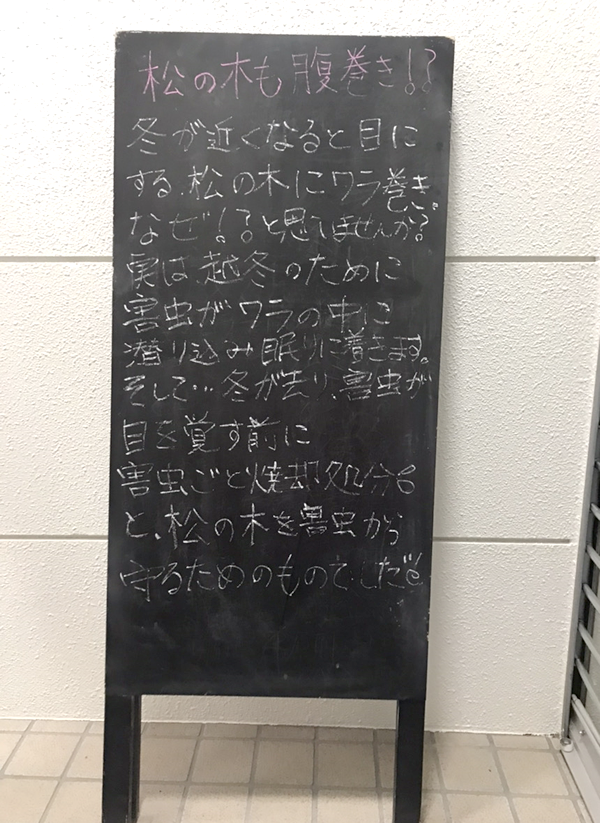 松の木も腹巻き!?
冬が近くなると目に
する、松の木にワラ巻き。
なぜ!?と思いませんか?
実は越冬のために
害虫がワラの中に
潜り込み眠りに着きます。
そして…冬が去り、害虫が
目を覚す前に
害虫ごと焼却処分
と、松の木を害虫から
守るためのものでした